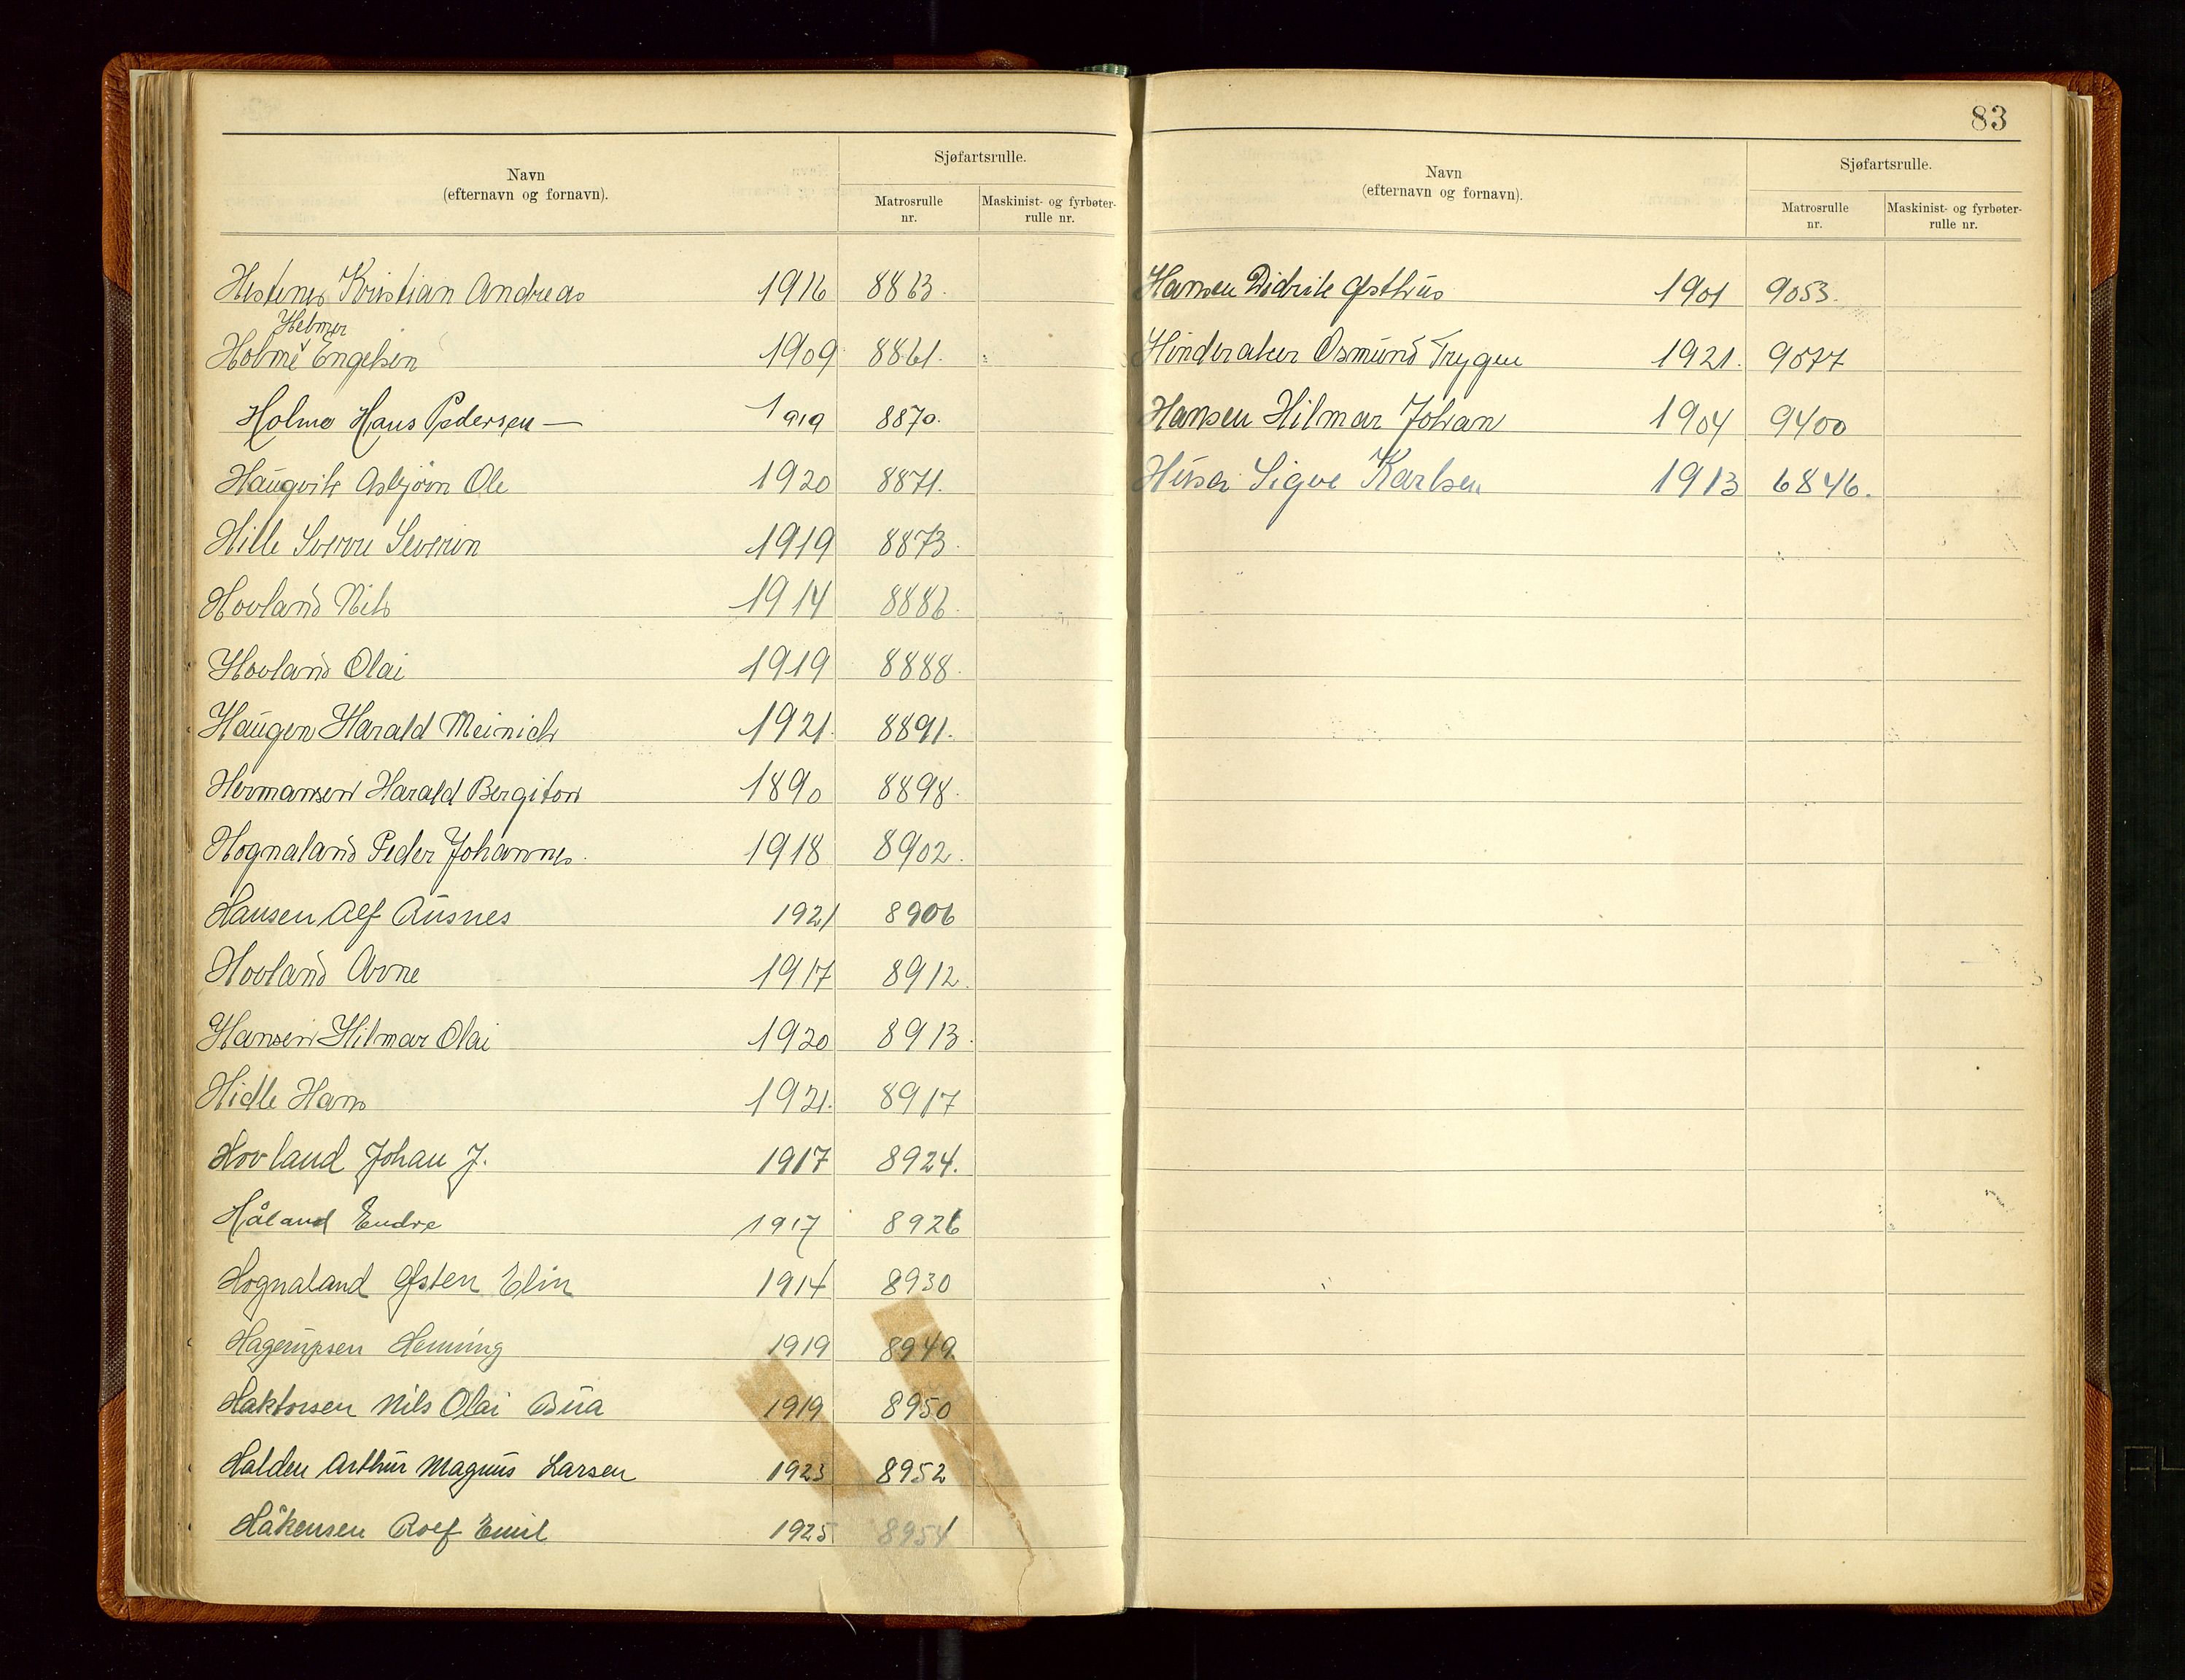 Navn
(efternavn og fornavn).
Sjøfartsrulle.
Matrosrulle
nr.
Maskinist- og fyrbøter-
rulle nr.
Hestenes Kristian Andreas 1916 8863.
Helmer
Holme Engelsen 1909 8861.
Holme Hans Pedersen — 1919 8870.
Haugvik Asbjørn Ole 1920 8871.
Hille Sverre Severin 1919 8873.
Hovland Nils 1914 8886.
Hovland Olai 1919 8888.
Haugen Harald Meinich 1921. 8891.
Hermansen Harald Bergiton 1890 8898.
Hognaland Peder Johannes. 1918 8902.
Hansen Alf Rusnes 1921 8906
Hovland Arne 1917 8912.
Hansen Hilmar Olai 1920 8913.
Hidle Hans 1921. 8917
Hovland Johan J. 1917 8924.
Håland Endre 1917 8926
Hognaland Østen Elin 1914 8930
Hagerupsen Henning 1919 8949.
Haktorsen Nils Olai Bua 1919 8950
Halden Arthur Magnus Larsen 1923 8952
Håkensen Rolf Emil 1925 8954
83
Navn
(efternavn og fornavn).
Sjøfartsrulle.
Matrosrulle
nr.
Maskinist- og fyrbøter-
rulle nr.
Hansen Didrik Østhus 1901 9053.
Hinderaker Osmund Trygve 1921. 9077
Hansen Hilmar Johan 1904 9400
Husa Sigve Karlsen 1913 6846.